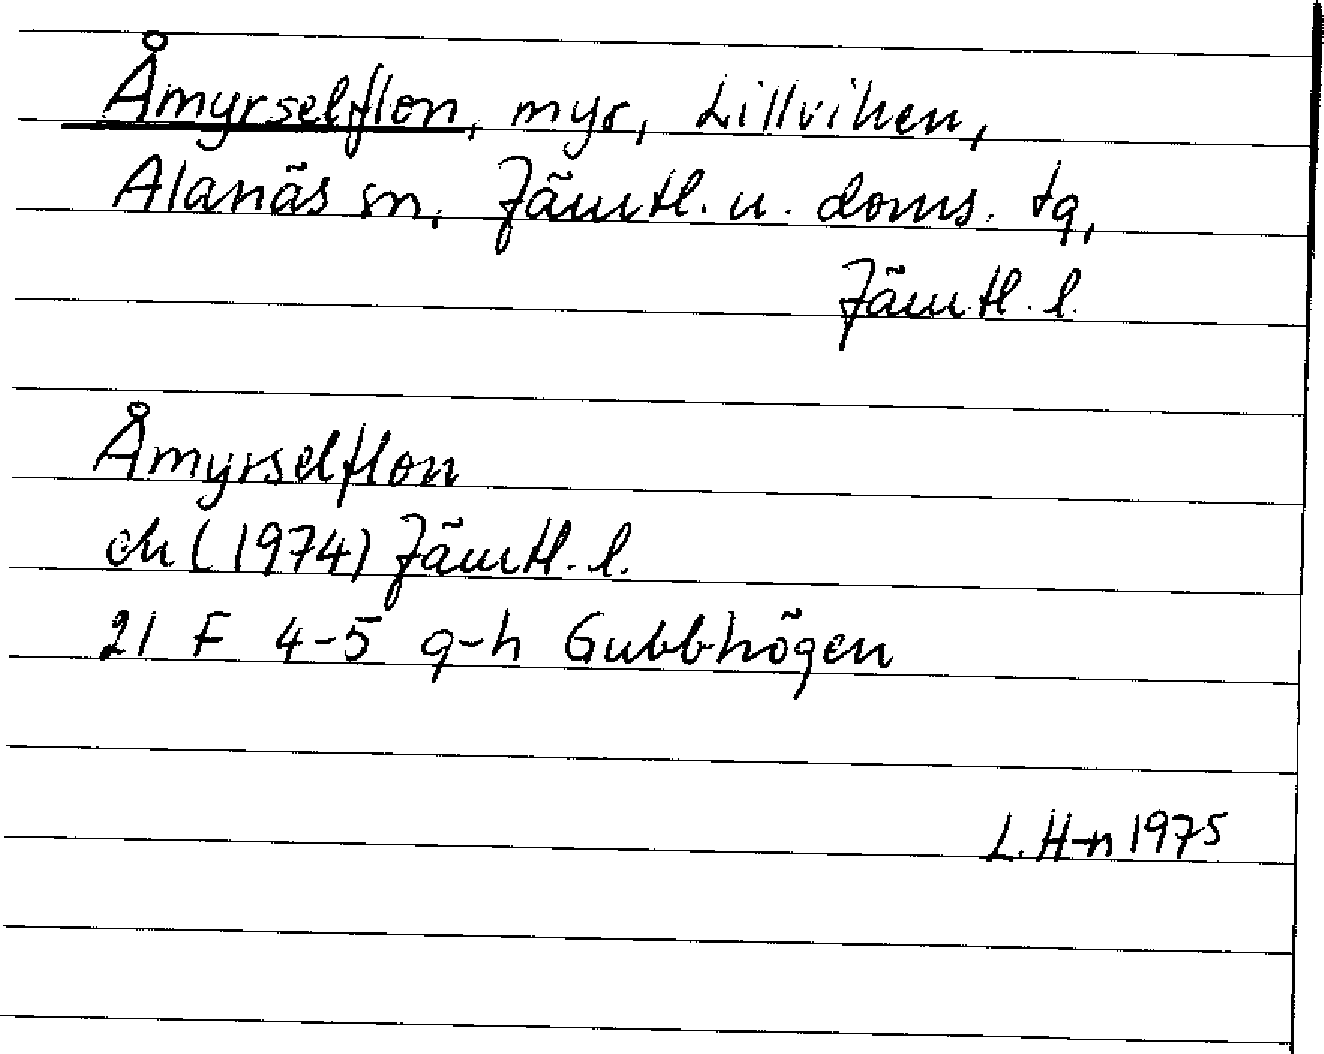 Åmyrselflon, myr, Lillviken,
Alanäs sn, Jämtl. n. doms. tg,
Jämtl. l.
Åmyrselflon
ek (1974) Jämtl. l.
21 F 4-5 g-h Gubbhögen
L. H-n 1975